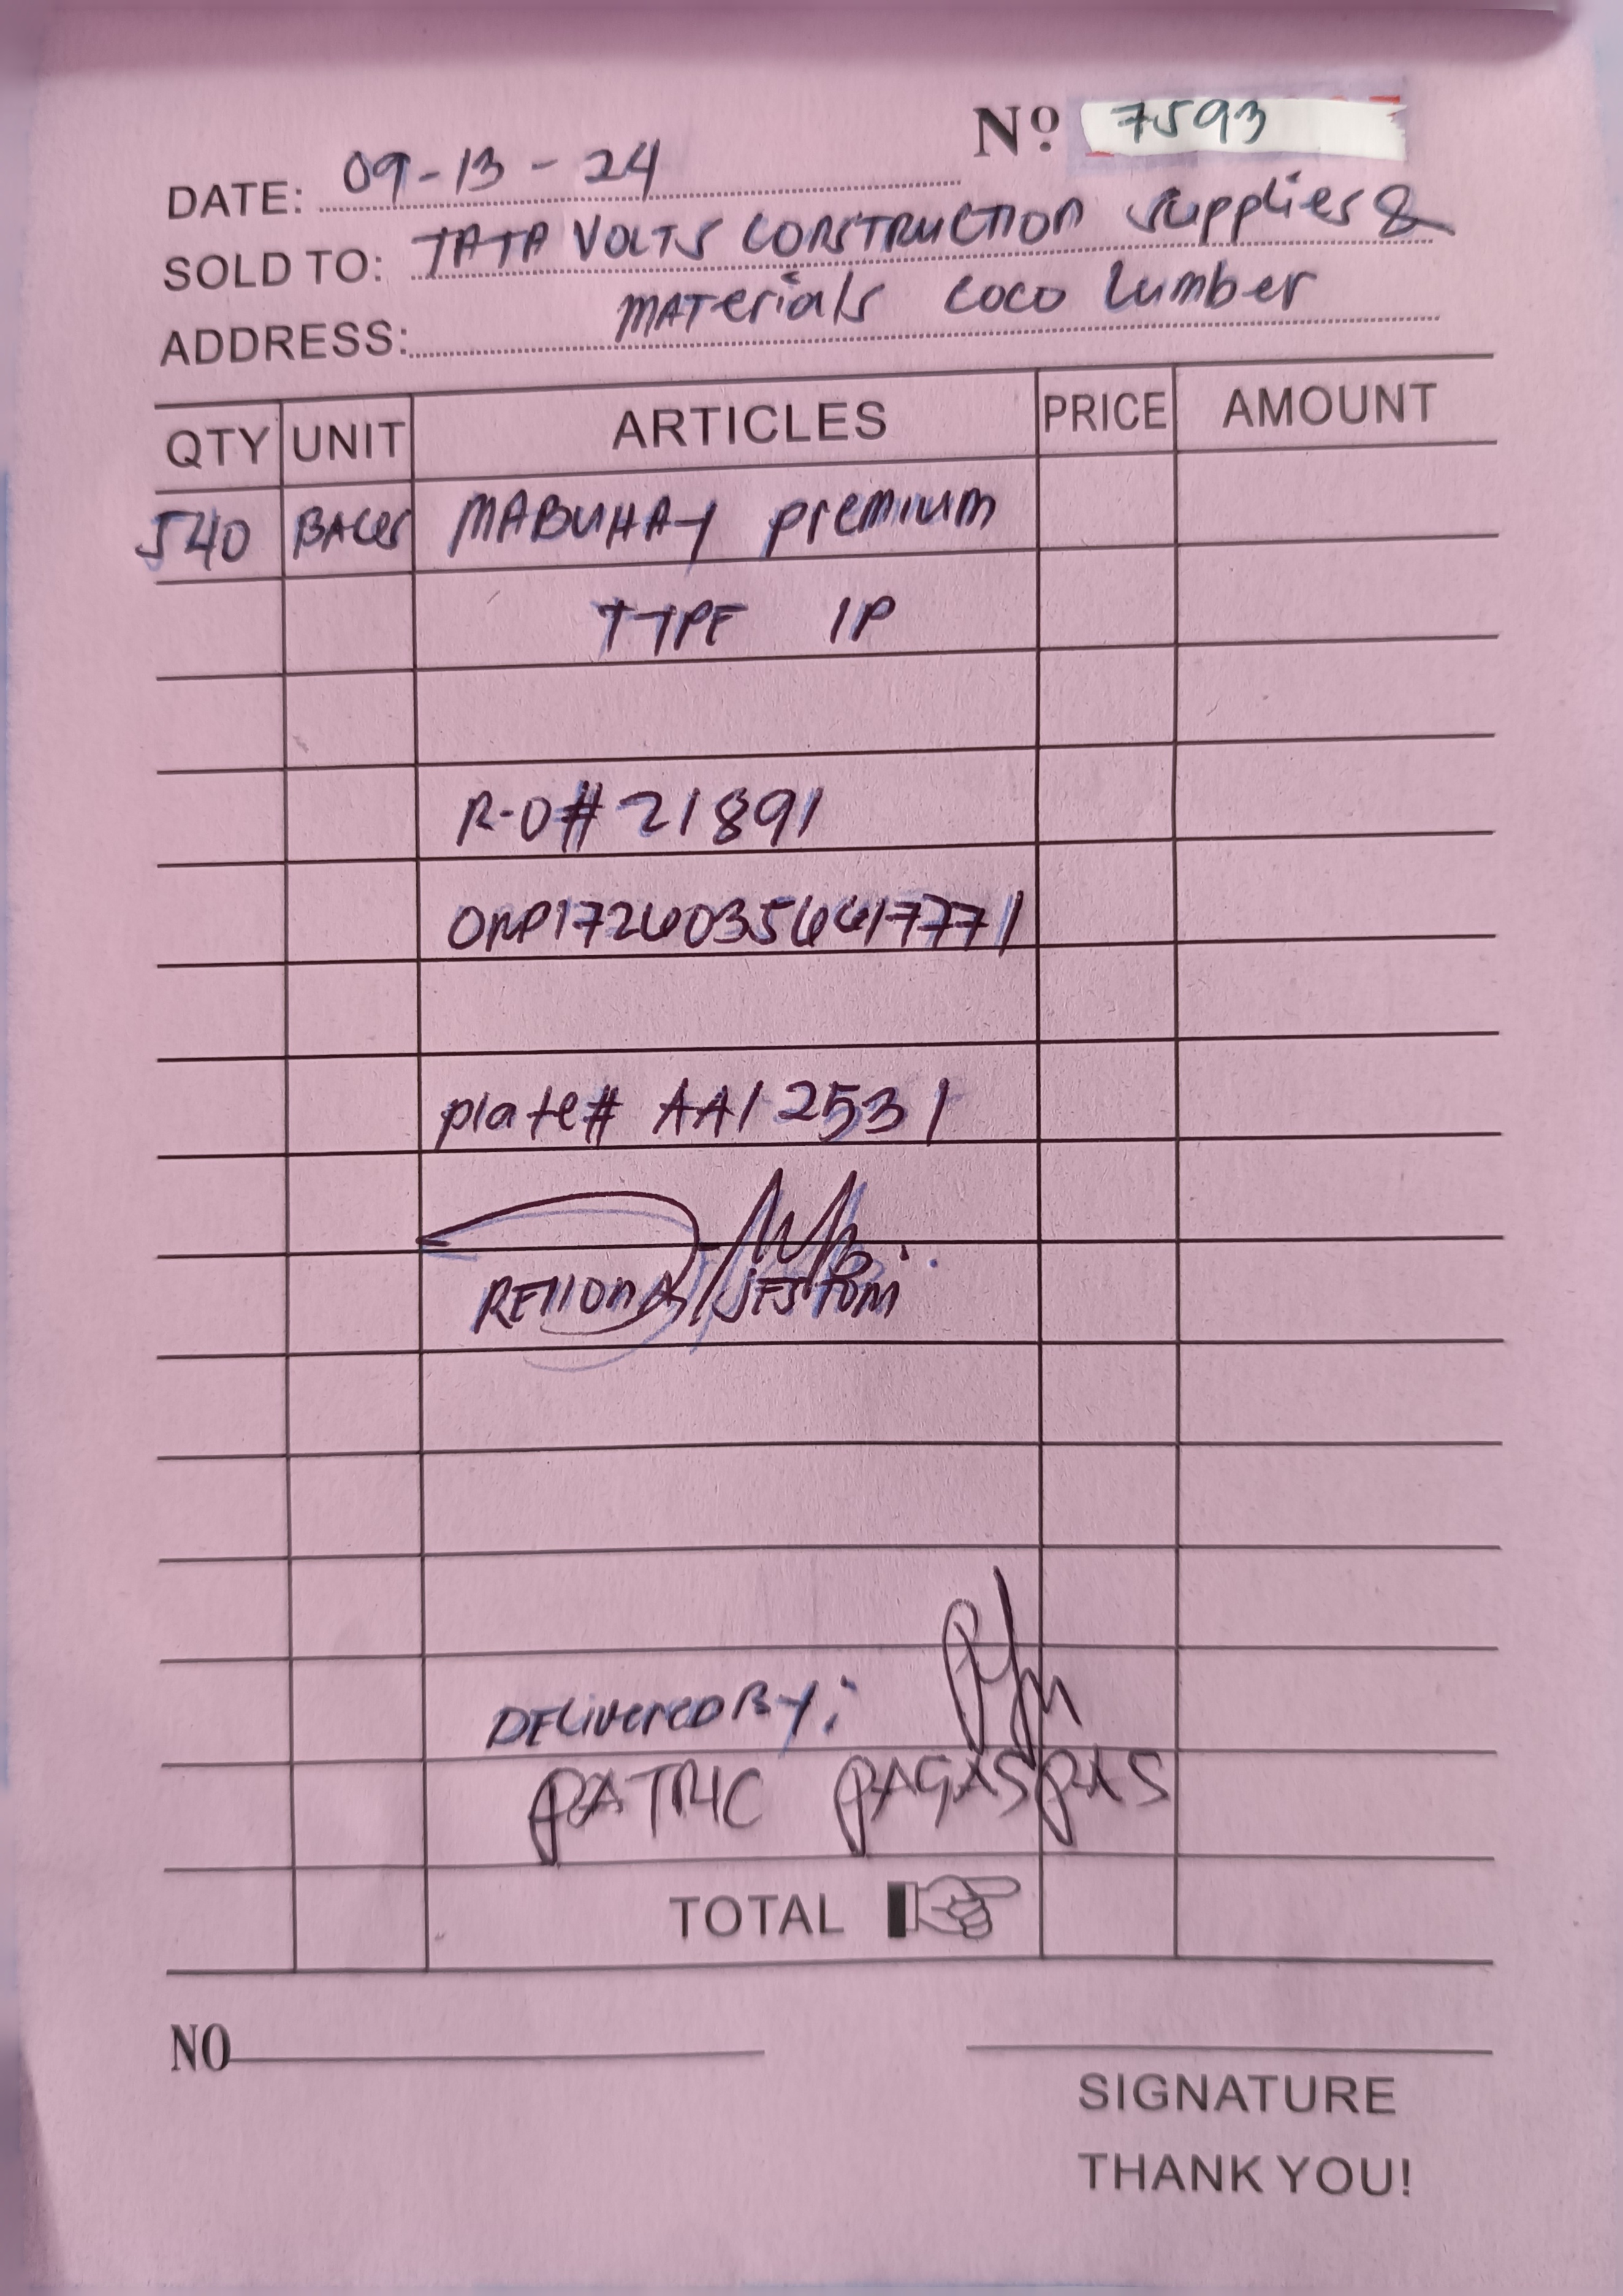 Nº 7593
DATE: 09-13-24
SOLD TO: TATA VOLTS CONSTRUCTION supplies &
ADDRESS: MATerials coco Lumber
QTY UNIT ARTICLES PRICE AMOUNT
540 BAGS MABUHAY premium
TYPE 1P
R-O# 21891
plate# AAI 2531
DELiveredBy:
PATRIC PAGASPAS
TOTAL
NO
SIGNATURE
THANK YOU!